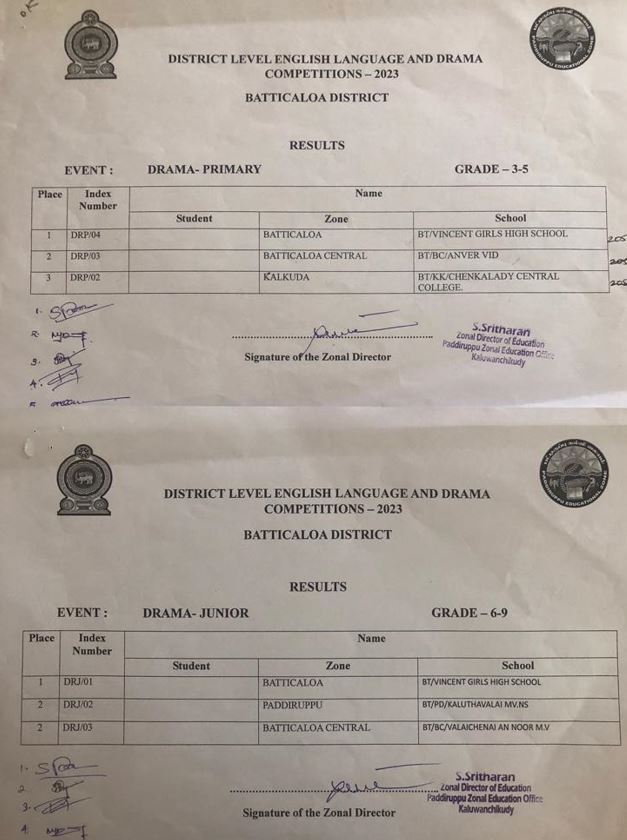 OK
DISTRICT LEVEL ENGLISH LANGUAGE AND DRAMA
COMPETITIONS – 2023
BATTICALOA DISTRICT
RESULTS
EVENT : DRAMA- PRIMARY GRADE – 3-5
Place Index Number Name
Student Zone School
1 DRP/04 BATTICALOA BT/VINCENT GIRLS HIGH SCHOOL
2 DRP/03 BATTICALOA CENTRAL BT/BC/ANVER VID
3 DRP/02 KALKUDA BT/KK/CHENKALADY CENTRAL
COLLEGE.
1.
2.
3.
4.
5.
Signature of the Zonal Director
S.Sritharan
Zonal Director of Education
Paddiruppu Zonal Education Office
Kaluwanchikudy
DISTRICT LEVEL ENGLISH LANGUAGE AND DRAMA
COMPETITIONS – 2023
BATTICALOA DISTRICT
RESULTS
EVENT : DRAMA- JUNIOR GRADE – 6-9
Place Index Number Name
Student Zone School
1 DRJ/01 BATTICALOA BT/VINCENT GIRLS HIGH SCHOOL
2 DRJ/02 PADDIRUPPU BT/PD/KALUTHAVALAI MV.NS
2 DRJ/03 BATTICALOA CENTRAL BT/BC/VALAICHENAI AN NOOR M.V
1.
2
3.
4.
Signature of the Zonal Director
S.Sritharan
Zonal Director of Education
Paddiruppu Zonal Education Office
Kaluwanchikudy